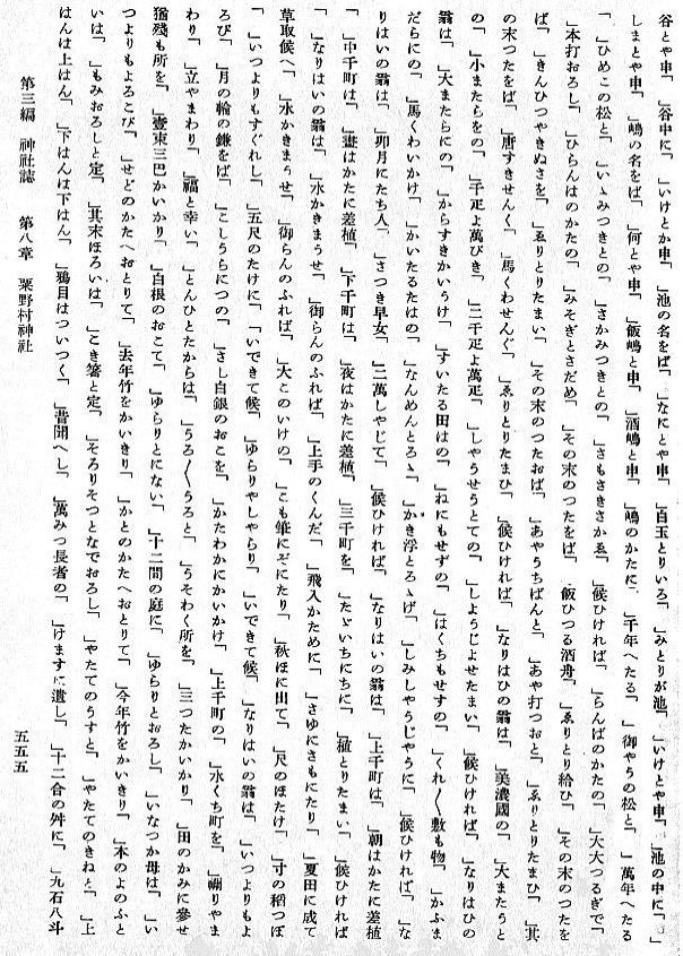 谷とや申「 」谷中に「 」いけとか申「 」池の名をば「 」なにとや申「 」白玉とりいろ「 」みとりが池「 」いけとや申「 」池の中に「 」
しまとや申「 」嶋の名をば「 」何とや申「 」飯嶋と申「 」酒嶋と申「 」嶋のかたに「 」千年へたる「 」御やうの松と「 」萬年へたる
「 」ひめこの松と「 」いゝみつきとの「 」さかみつきとの「 」さもさきさかゑ「 」候ひければ「 」らんばのかたの「 」大大つるぎで「
」本打おろし「 」ひらんはのかたの「 」みそぎとさだめ「 」その末のつたをば「 」飯ひつる酒舟「 」ゑりとり給ひ「 」その末のつたを
ば「 」きんひつやきぬさを「 」ゑりとりたまい「 」その末のつたおば「 」あやうちばんと「 」あや打つおと「 」ゑりとりたまひ「 」其
の末つたをば「 」唐すきせんく「 」馬くわせんぐ「 」ゑりとりたまひ「 」候ひければ「 」なりはひの翁は「 」美濃國の「 」大またうと
の「 」小またらをの「 」千疋よ萬びき「 」二千疋よ萬疋「 」しやうせうとての「 」しようじよせたまい「 」候ひければ「 」なりはひの
翁は「 」大またらにの「 」からすきかいうけ「 」すいたる田はの「 」ねにもせずの「 」はくちもせすの「 」くれ〳〵敷も物「 」かふま
だらにの「 」馬くわいかけ「 」かいたるたはの「 」なんめんとろゝ「 」かき浮とろゝげ「 」しみしやうじやうに「 」候ひければ「 」な
りはいの翁は「 」卯月にたち人「 」さつき早女「 」二萬しやじて「 」候ひければ「 」なりはいの翁は「 」上千町は「 」朝はかたに差植
「 」中千町は「 」晝はかたに差植「 」下千町は「 」夜はかたに差植「 」三千町を「 」たゞいちにちに「 」植とりたまい「 」候ひければ
「 」なりはいの翁は「 」水かきまうせ「 」御らんのふれば「 」上手のくんだ「 」飛入かために「 」さゆにさもにたり「 」夏田に成て
草取候へ「 」水かきまうせ「 」御らんのふれば「 」大このいけの「 」こも筆にぞにたり「 」秋ほに出て「 」尺のほたけ「 」寸の稻つぼ
「 」いつよりもすぐれし「 」五尺のたけに「 」いできて候「 」ゆらりやしやらり「 」いできて候「 」なりはいの翁は「 」いつよりもよ
ろび「 」月の輪の鎌をば「 」こしうらにつの「 」さし白銀のおこを「 」かたわかにかいかけ「 」上千町の「 」水くち町を「 」繝りやま
わり「 」立やまわり「 」福と幸い「 」とんひとたからは「 」うろ〳〵うろと「 」うそわく所を「 」三つたかいかり「 」田のかみに參せ
猶殘も所を「 」壹束三巴かいかり「 」白根のおこて「 」ゆらりとにない「 」十二間の庭に「 」ゆらりとおろし「 」いなつか母は「 」い
つよりもよろこび「 」せどのかたへおとりて「 」去年竹をかいきり「 」かとのかたへおとりて「 」今年竹をかいきり「 」本のよのふと
いは「 」もみおろしと定「 」其末ほろいは「 」こき箸と定「 」そろりそつとなでおろし「 」やたてのうすと「 」やたてのきねと「 」上
はんは上はん「 」下はんは下はん「 」鴉目はついつく「 」昔聞へし「 」萬みつ長者の「 」けますに遺し「 」十二合の舛に「 」九石八斗
第三編 神社誌 第八章 粟野村神社
五五五